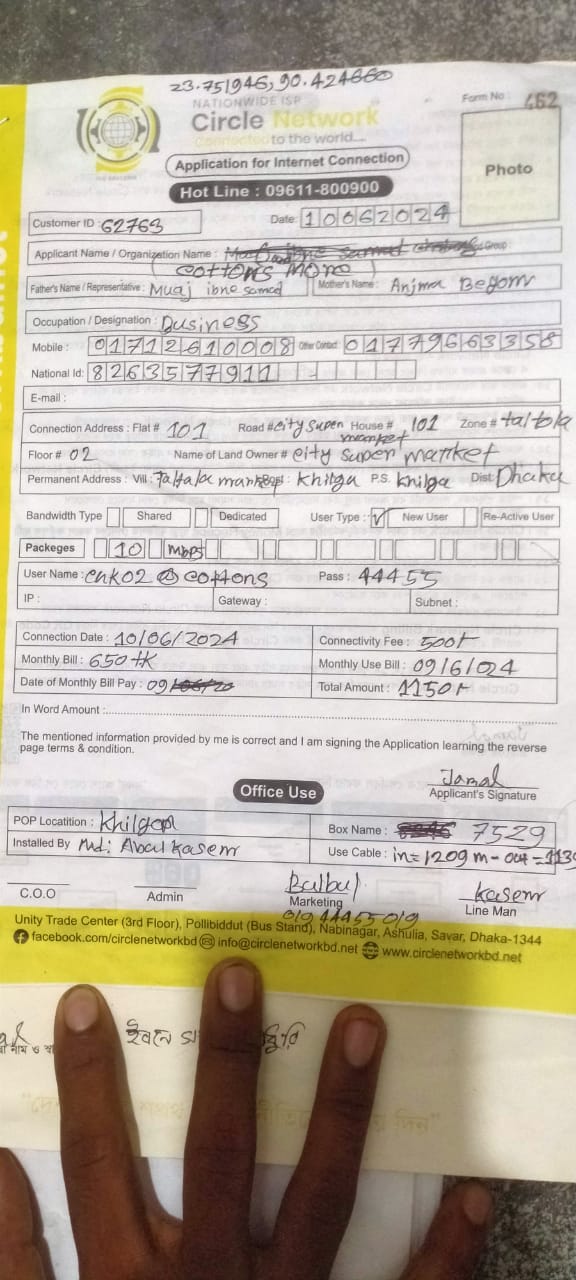 23.751946, 90.424660
NATIONWIDE ISP
Form No : 462
Circle Network
Connected to the world....
Application for Internet Connection
Photo
Hot Line : 09611-800900
Customer ID : 62763 Date: 10062024
Applicant Name / Organization Name : Group :
( cottons more )
Father's Name / Representative : Muaj ibne samad Mother's Name : Anjma Begom
Occupation / Designation : Business
Mobile : 01712610008 Other Contact : 01779663358
National Id: 8263577911
E-mail :
Connection Address : Flat # 101 Road # city super market House # 101 Zone # taltola
Floor # 02 Name of Land Owner # city super market
Permanent Address : Vill : Taltala market Post : Khilga P.S. Khilga Dist: Dhaka
Bandwidth Type Shared Dedicated User Type : ✓ New User Re-Active User
Packeges 10 Mbps
User Name : cnk02 @ cottons Pass : 44455
IP : Gateway : Subnet :
Connection Date : 10/06/2024 Connectivity Fee : 500/-
Monthly Bill : 650 tk Monthly Use Bill : 09/6/024
Date of Monthly Bill Pay : 09 Total Amount : 1150/-
In Word Amount :
The mentioned information provided by me is correct and I am signing the Application learning the reverse
page terms & condition.
Jamal
Applicant's Signature
Office Use
POP Locatition : Khilgaon Box Name : 7529
Installed By Md: Abul Kasem Use Cable : in=1209 m - out = 113
C.O.O Admin Bulbul Marketing Kasem Line Man
01944455019
Unity Trade Center (3rd Floor), Pollibiddut (Bus Stand), Nabinagar, Ashulia, Savar, Dhaka-1344
facebook.com/circlenetworkbd info@circlenetworkbd.net www.circlenetworkbd.net
ইবনে